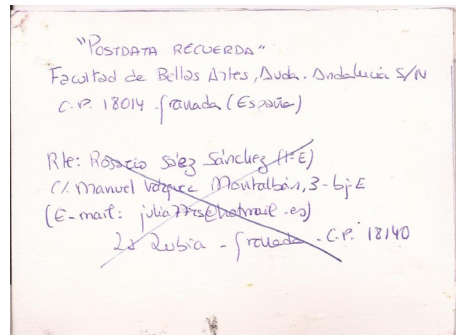 "POSTDATA RECUERDA"
Facultad de Bellas Artes, Avda. Andalucía S/N
C.P. 18014 - Granada (España)
Rte: Rosario Sáez Sánchez (1ºE)
C/. Manuel Vázquez Montalbán, 3 - bj-E
(E-mail: julia77rs@hotmail.es)
La Zubia - Granada. C.P. 18140